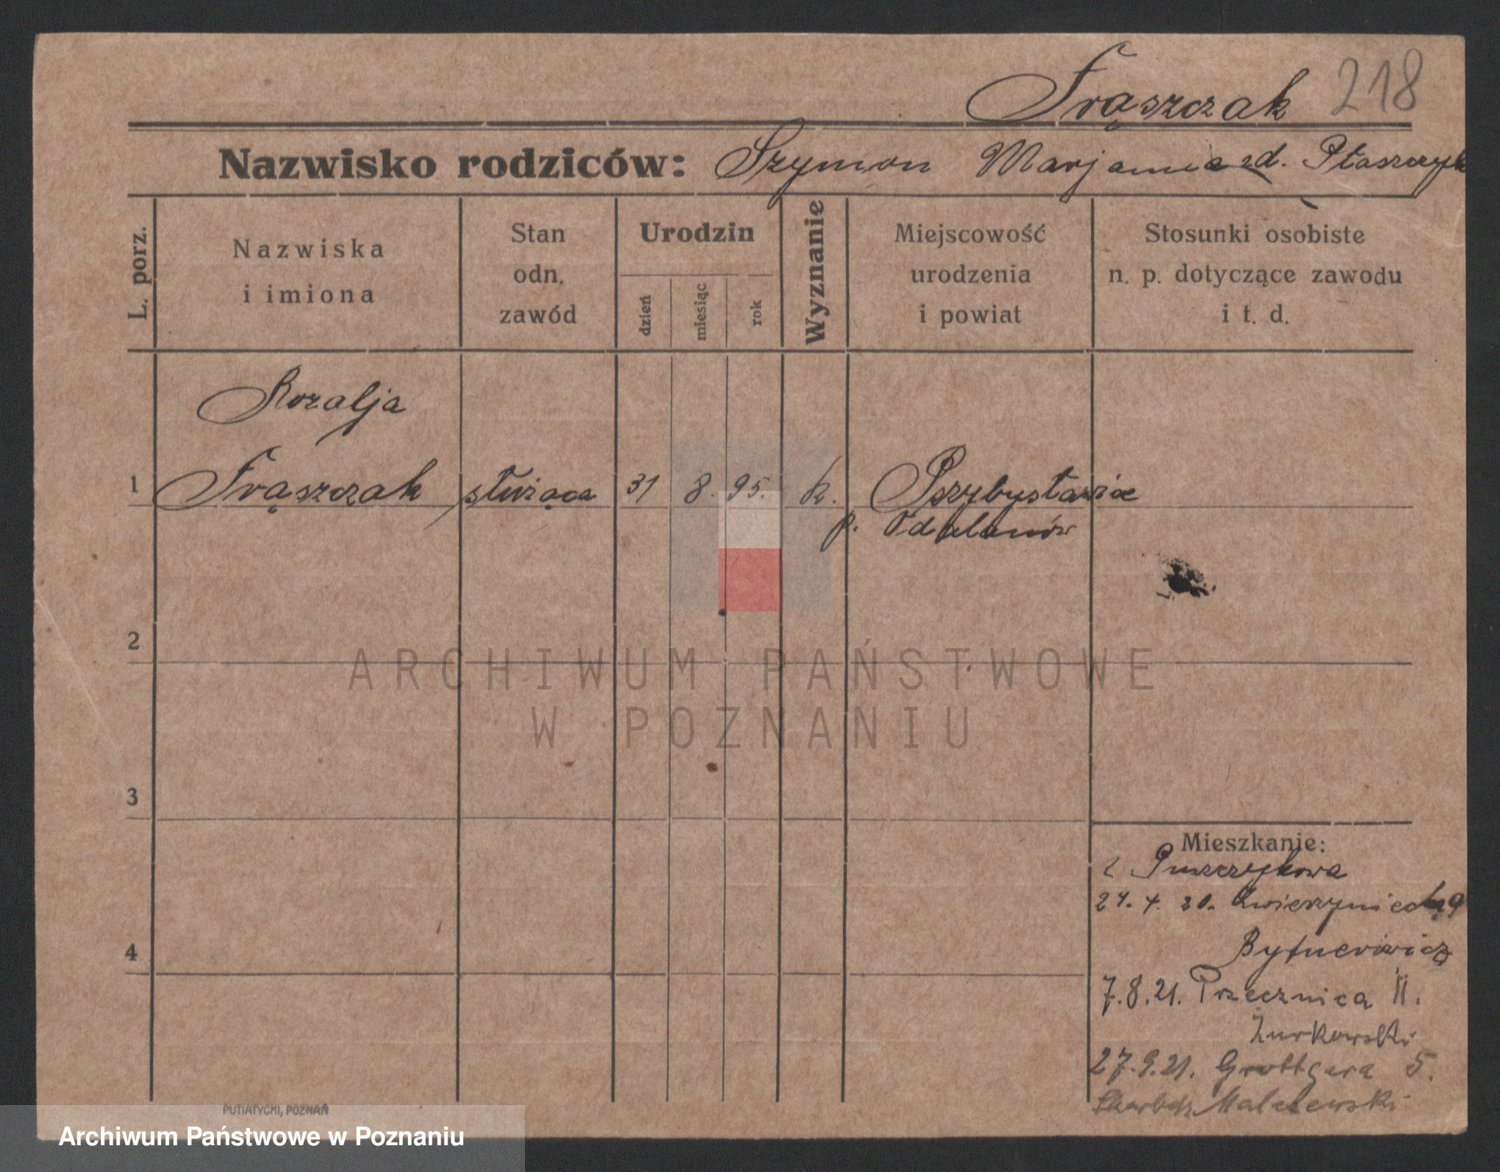 Frąszczak 218
Nazwisko rodziców: Szymon Marjanna zd. Ptaszczyk
L. porz.
Nazwiska
i imiona
Stan
odn.
zawód
Urodzin
dzień
miesiąc
rok
Wyznanie
Miejscowość
urodzenia
i powiat
Stosunki osobiste
n. p. dotyczące zawodu
i t. d.
Rozalja
1 Frąszczak służąca 31 8. 95. k. Przybysławice
p. Odolanów
2
ARCHIWUM PAŃSTWOWE
W POZNANIU
3
Mieszkanie:
z Puszczykowa
27. 4. 20. Zwierzyniecka 9
4
7.8.21. Przecznica 11.
Żurkowski
27.9.21. Grottgera 5.
Malczewski
PUTIATYCKI, POZNAŃ
Archiwum Państwowe w Poznaniu